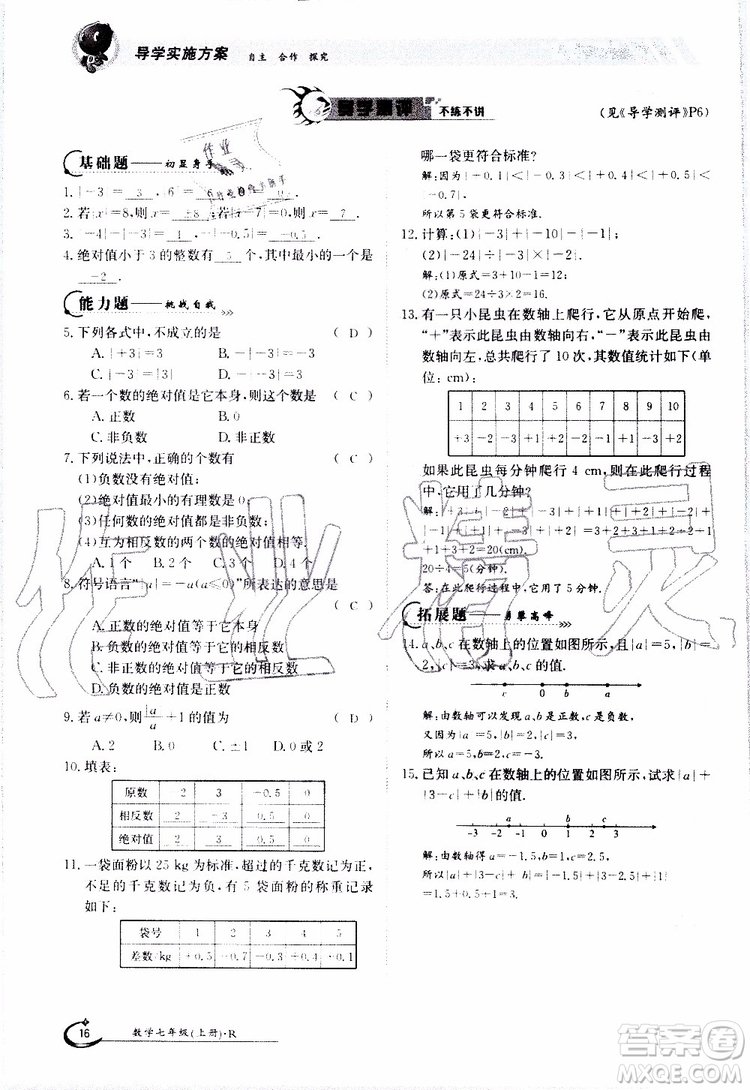 导学实施方案 自主 合作 探究
导学测评 不练不讲
(见《导学测评》P6)
基础题——初显身手
1. |-3|= 3 ,|6|=
2. 若|x|=8,则 x= ±8 ;若|-7|=|x|,则 x= 7 .
3. -4|-3|= 1 ,-|-0.5|= -0.5 .
4. 绝对值小于 3 的整数有 5 个,其中最小的一个是
-2 .
能力题——挑战自我
5. 下列各式中,不成立的是 ( D )
A. |+3|=|-3| B. -|-3|=-3
C. |-3|=|3| D. -|-3|=3
6. 若一个数的绝对值是它本身,则这个数是 ( C )
A. 正数 B. 0
C. 非负数 D. 非正数
7. 下列说法中,正确的个数有 ( C )
(1)负数没有绝对值;
(2)绝对值最小的有理数是 0;
(3)任何数的绝对值都是非负数;
(4)互为相反数的两个数绝对值相等.
A. 1 个 B. 2 个 C. 3 个 D. 4 个
8. 符号语言“|a|=-a(a≤0)”所表达的意思是
( C )
A. 正数的绝对值等于它本身
B. 负数的绝对值等于它的相反数
C. 非正数的绝对值等于它的相反数
D. 负数的绝对值是正数
9. 若 a≠0,则|a|/a+1 的值为 ( D )
A. 2 B. 0 C. ±1 D. 0 或 2
10. 填表:
原数 2 3 -0.5
相反数 -2 -3 0.5
绝对值 2 3 0.5
11. 一袋面粉以 25 kg 为标准,超过的千克数记为正,
不足的千克数记为负,有 5 袋面粉的称重记录
如下:
袋号 1 2 3 4 5
差数/kg +0.5 -0.5 +0.3 -0.4 -0.1
哪一袋更符合标准?
解:因为|-0.1|<|-0.3|<|-0.4|<|+0.5|
所以第 5 袋更符合标准.
12. 计算:(1)|-3|+|-10|-|-1|;
(2)|-24|÷|-3|×|-2|.
解:(1)原式=3+10-1=12.
(2)原式=24÷3×2=16.
13. 有一只小昆虫在数轴上爬行,它从原点开始爬,
“+”表示此昆虫由数轴向右,“-”表示此昆虫由
数轴向左,总共爬行了 10 次,其数值统计如下(单
位:cm):
1 2 3 4 5 6 7 8 9 10
+3 -2 -3 +1 +2 -2 -1 +1 -3 +2
如果此昆虫每分钟爬行 4 cm,则在此爬行过程
中,它用了几分钟?
20÷4=5(分钟).
答:在此爬行过程中,它用了 5 分钟.
拓展题——勇攀高峰
14. a、b、c 在数轴上的位置如图所示,且|a|=5,|b|=
2,|c|=3,求 a、b、c 的值.
c 0 b a
解:由数轴可以发现 a、b 是正数,c 是负数,
所以 a=5,b=2,c=-3.
15. 已知 a、b、c 在数轴上的位置如图所示,试求|a|+
|3-c|+|-b|的值.
a b c
-3 -2 -1 0 1 2 3
16 数学七年级(上册)·R